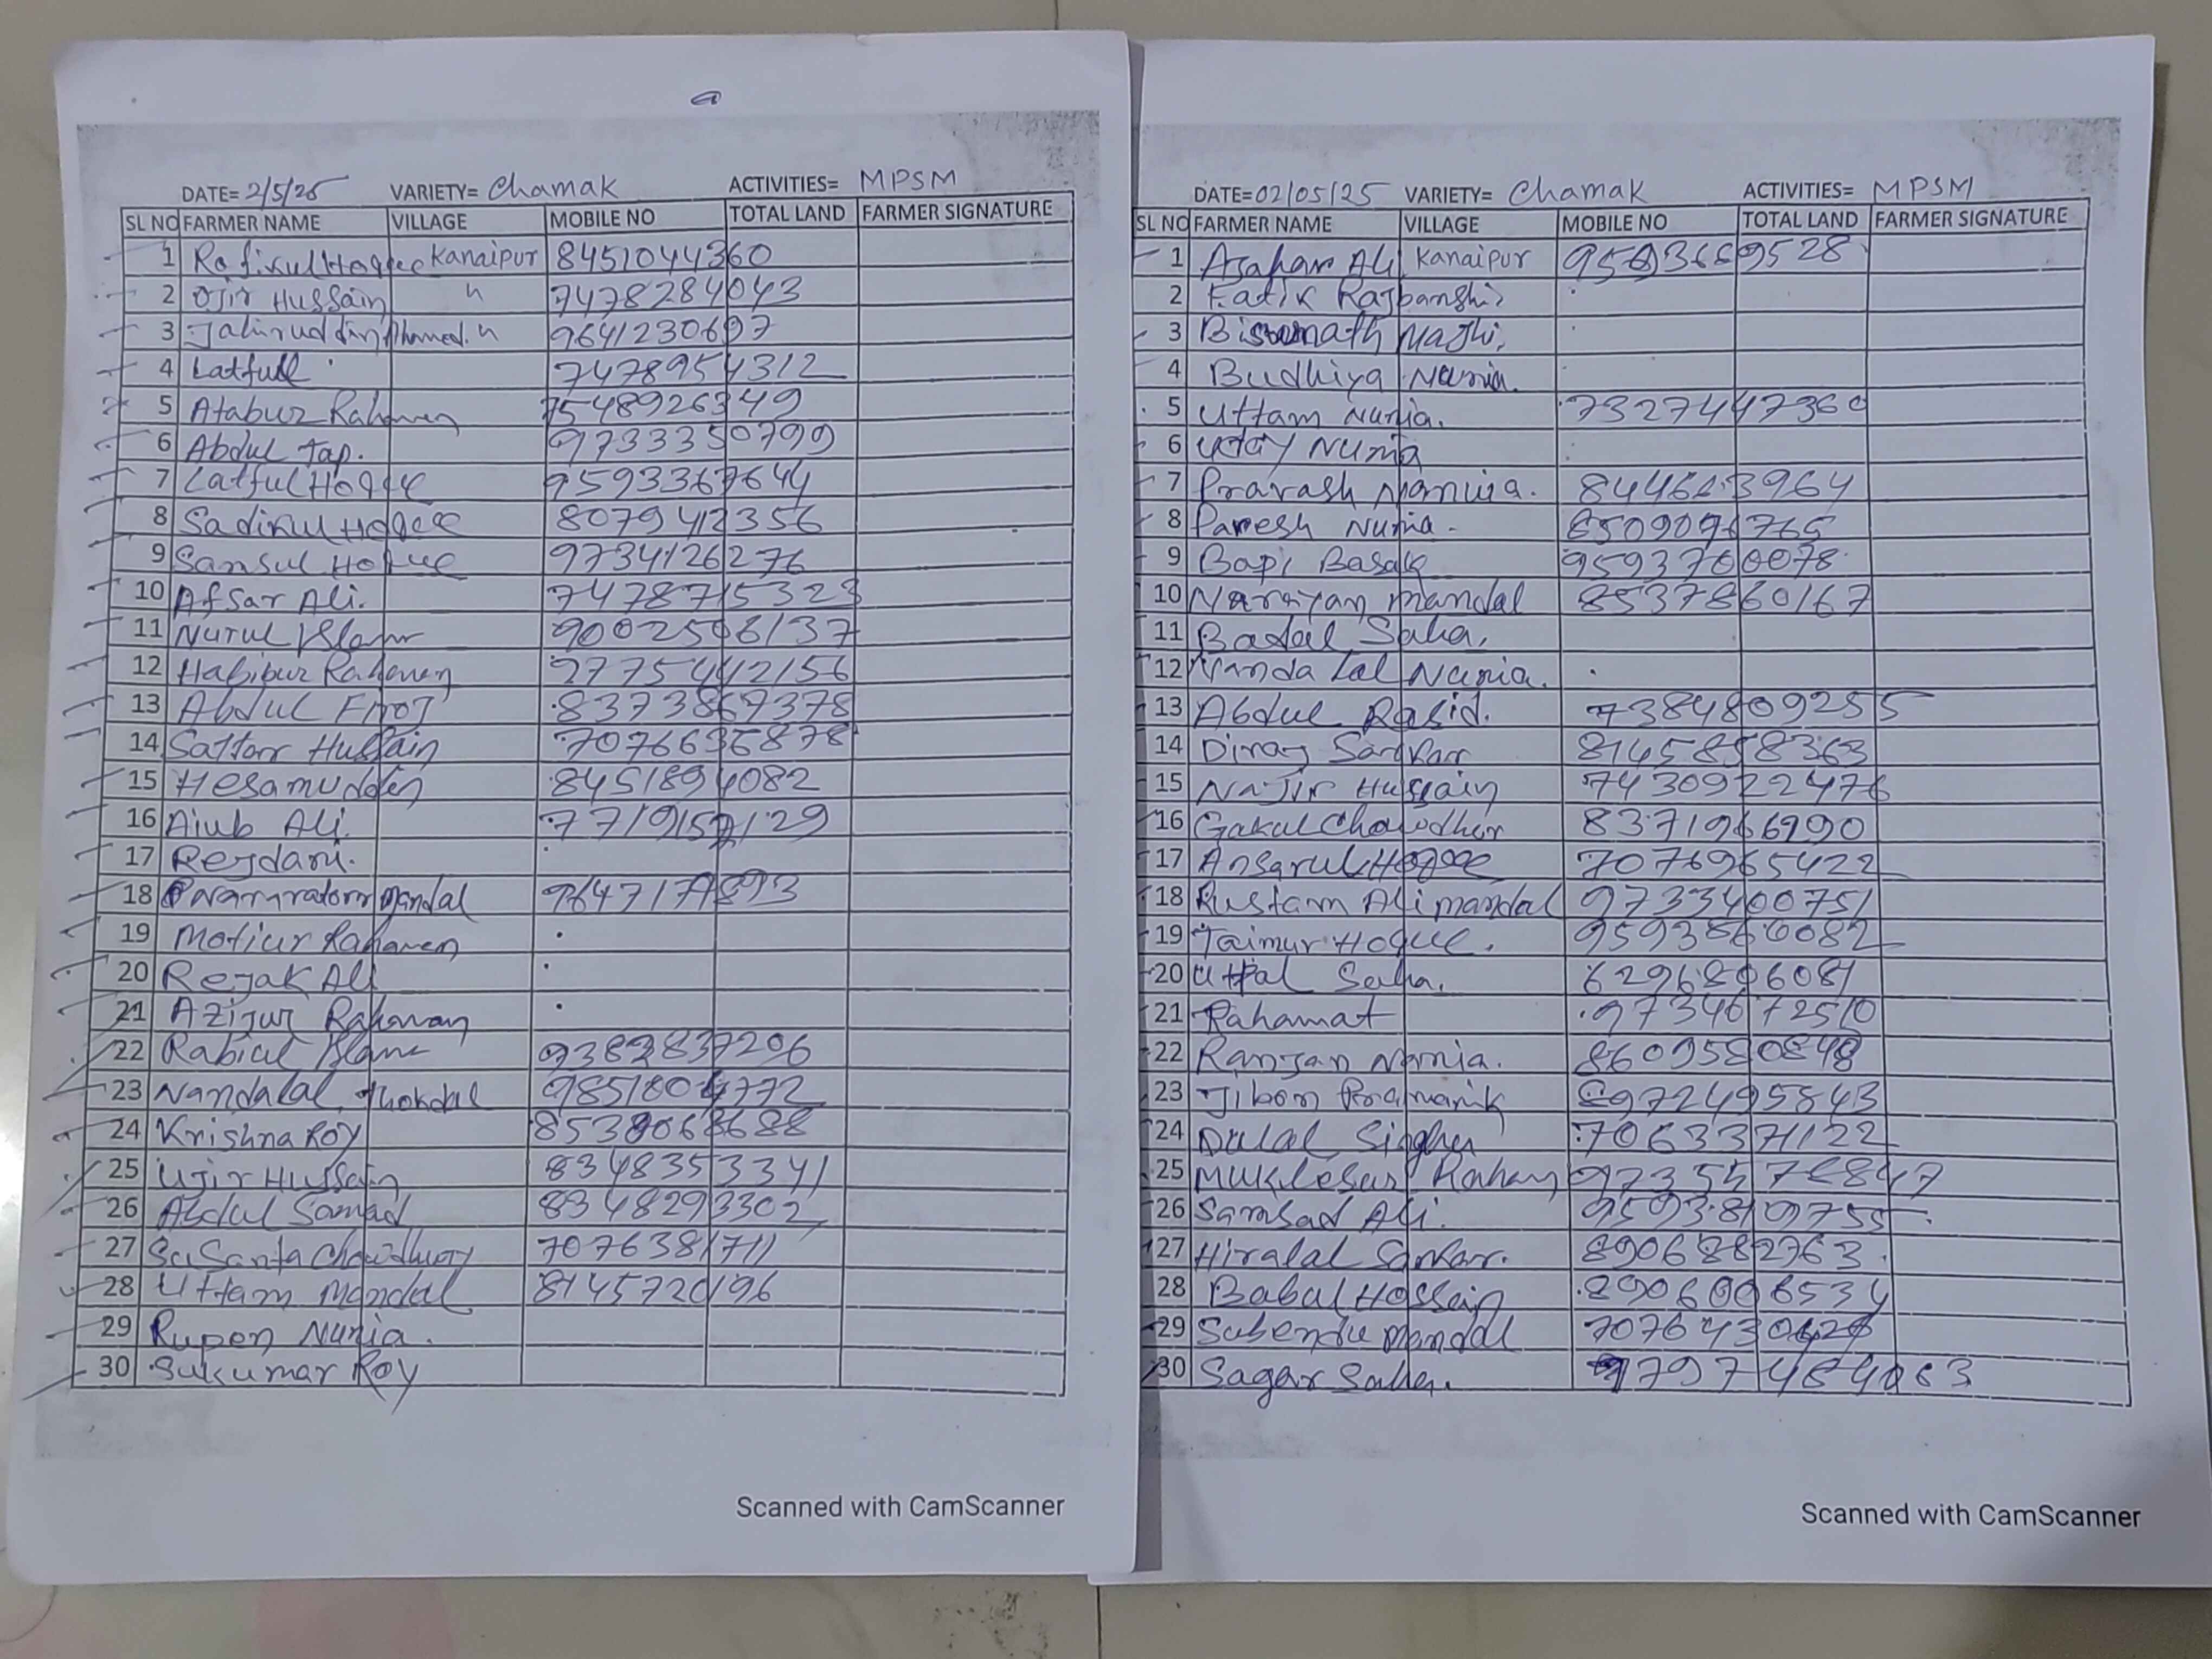 DATE= 2/5/25 VARIETY= Chamak ACTIVITIES= MPSM
SL NO FARMER NAME VILLAGE MOBILE NO TOTAL LAND FARMER SIGNATURE
1 Rafikul Hoque Kanaipur 8451044360
2 Ojir Hussain 〃 7478284043
3 Jahiruddin Ahamed. 〃 9641230697
4 Latfull 7478954312
5 Atabur Rahaman 7548926349
6 Abdul Tap. 9733350799
7 Latful Hoque 9593367644
8 Sadikul Hoque 8079412356
9 Sansul Hoque 9734126276
10 Afsar Ali. 7478715323
11 Nurul Islam 9002506137
12 Habibur Rahaman 9775442156
13 Abdul Firoj 8373867378
14 Sattar Hussain 7076636878
15 Hesamudden 8451894082
16 Aiub Ali. 7719157129
17 Rejdani.
18 Mandal
19 Motiur Rahaman
20 Rejak Ali
21 Azijur Rahaman
22 Rabiul Islam 9382837206
23 Nandalal 9851804772
24 Krishna Roy
25 Ujir Hussain 8348353341
26 Abdul Samad 8348293302
27 Susanta Chowdhury 7076381711
28 Uttam Mondal 8145720196
29 Rupen Nunia.
30 Sukumar Roy
Scanned with CamScanner
DATE= 02/05/25 VARIETY= Chamak ACTIVITIES= MPSM
SL NO FARMER NAME VILLAGE MOBILE NO TOTAL LAND FARMER SIGNATURE
1 Asahar Ali Kanaipur
2 Fatik Rajbanshi
3 Biswanath Majhi,
4 Budhiya Nunia.
5 Uttam Nunia. 7327447360
6 Uday Nunia
7 Pravash
8 Paresh Nunia.
9 Bapi Basak 9593760078
10 Narayan Mandal 8537860167
11 Badal Saha,
12 Nanda Lal Nunia.
13 Abdul Rasid. 7384809255
14 Dinay Sarkar 8145858363
15 Najir Hussain 7430922476
16 Gakul Chowdhur 8371966990
17 Ansarul Hoque 7076965422
18 Rustam Ali mandal 9733400751
19 Taimur Hoque. 9593866082
20 Utpal Saha. 6296806081
21 Rahamat 9734672510
22 Ranjan Nunia. 8609580848
23 Jibon Pramanik 8972495843
24 Dulal Singha 7063371122
25 Muklesur Raham
26 Samsad Ali. 9593819755
27 Hiralal Sarkar. 8906882763
28 Babul Hossain 8906006534
29 Subendu Mandal
30 Sagar Saha.
Scanned with CamScanner